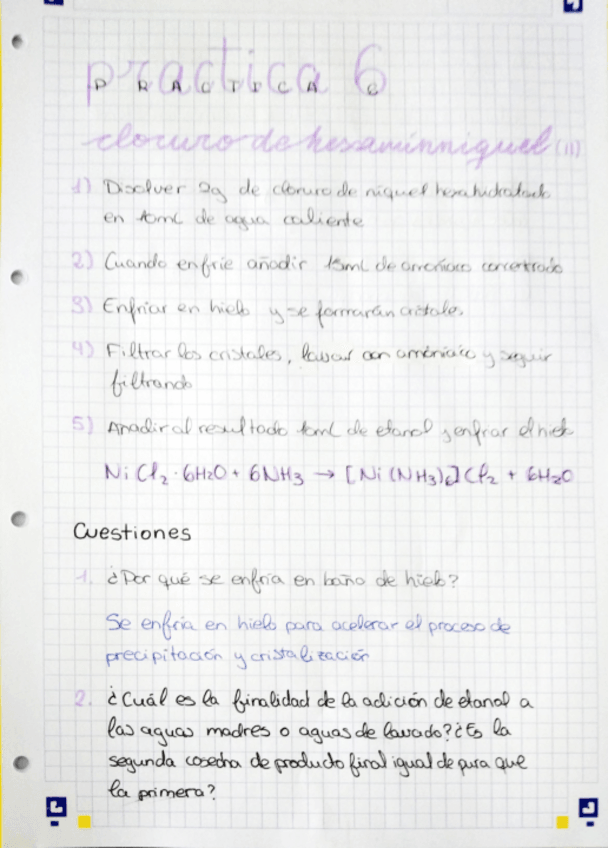 practica 6
PRACTICA 6
cloruro de hexaminniquel (II)
1) Disolver 2g de cloruro de niquel hexahidratado
en 10mL de agua caliente
2) Cuando enfríe añadir 15mL de amoniaco concentrado
3) Enfriar en hielo y se formarán cristales.
4) Filtrar los cristales, lavar con amóniaco y seguir
filtrando
5) Añadir al resultado 10mL de etanol y enfriar
NiCl₂·6H₂O + 6NH₃ → [Ni(NH₃)₆]Cl₂ + 6H₂O
Cuestiones
1. ¿Por qué se enfría en baño de hielo?
Se enfría en hielo para acelerar el proceso de
precipitación y cristalización
2. ¿Cuál es la finalidad de la adición de etanol a
las aguas madres o aguas de lavado? ¿Es la
segunda cosecha de producto final igual de pura que
la primera?